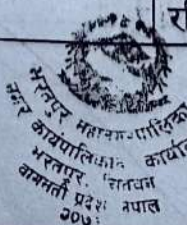 भरतपुर महानगरपालिका
नगर कार्यपालिकाको कार्यालय
भरतपुर, चितवन
वागमती प्रदेश नेपाल